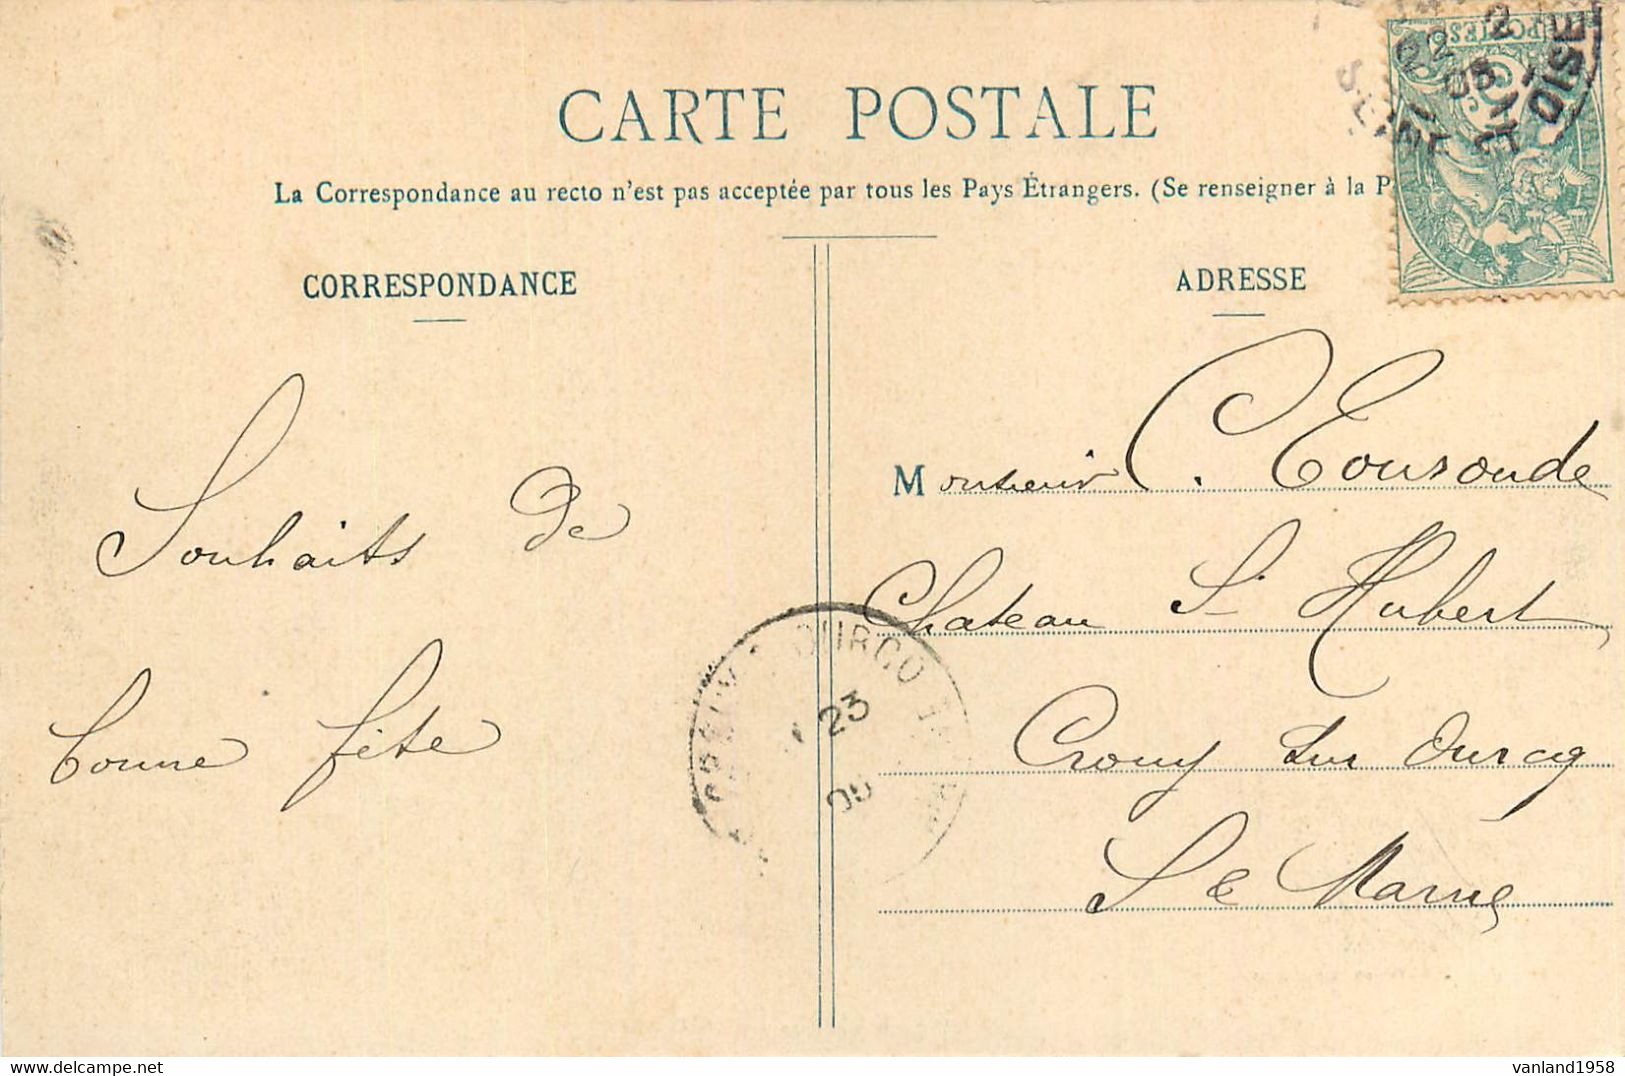 CARTE POSTALE
La Correspondance au recto n'est pas acceptée par tous les Pays Étrangers. (Se renseigner à la P
CORRESPONDANCE
ADRESSE
Souhaits de
bonne fête
Monsieur C. Coursoude
Chateau St Hubert
Crouy sur Ourcq
S & Marne
OURCQ
23
05
POSTES
vanland1958